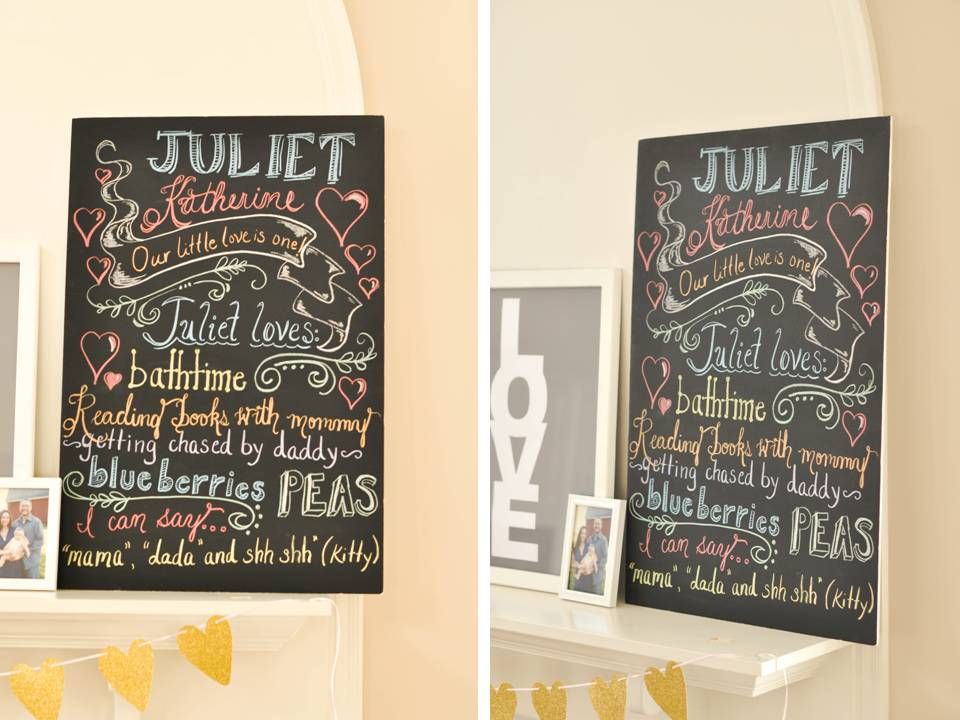 JULIET
Katherine
Our little love is one!
Juliet loves:
bathtime
Reading books with mommy
~getting chased by daddy~
blueberries PEAS
I can say...
"mama", "dada" and shh shh" (kitty)
LOVE
JULIET
Katherine
Our little love is one!
Juliet loves:
bathtime
Reading books with mommy
~getting chased by daddy~
blueberries PEAS
I can say...
"mama", "dada" and shh shh" (kitty)